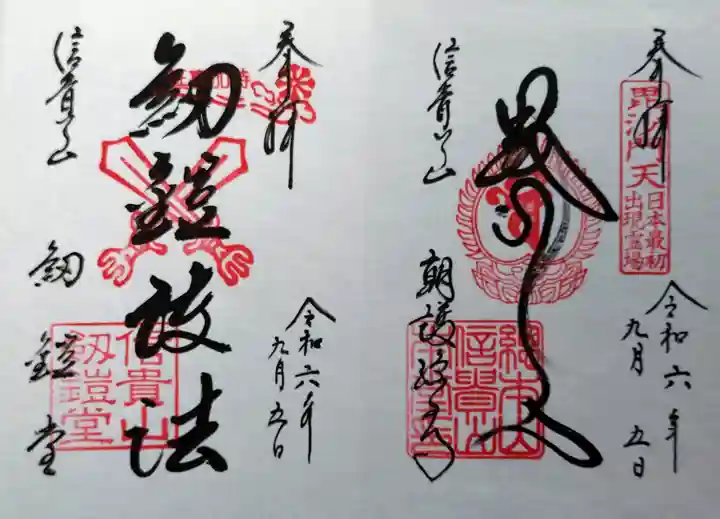 奉拝
毘沙門天
日本最初
出現霊場
令和六年
九月五日
信貴山
朝護孫子寺
奉拝
令和六年
九月五日
剱鎧護法
信貴山
剱鎧堂
信貴山
剱鎧堂